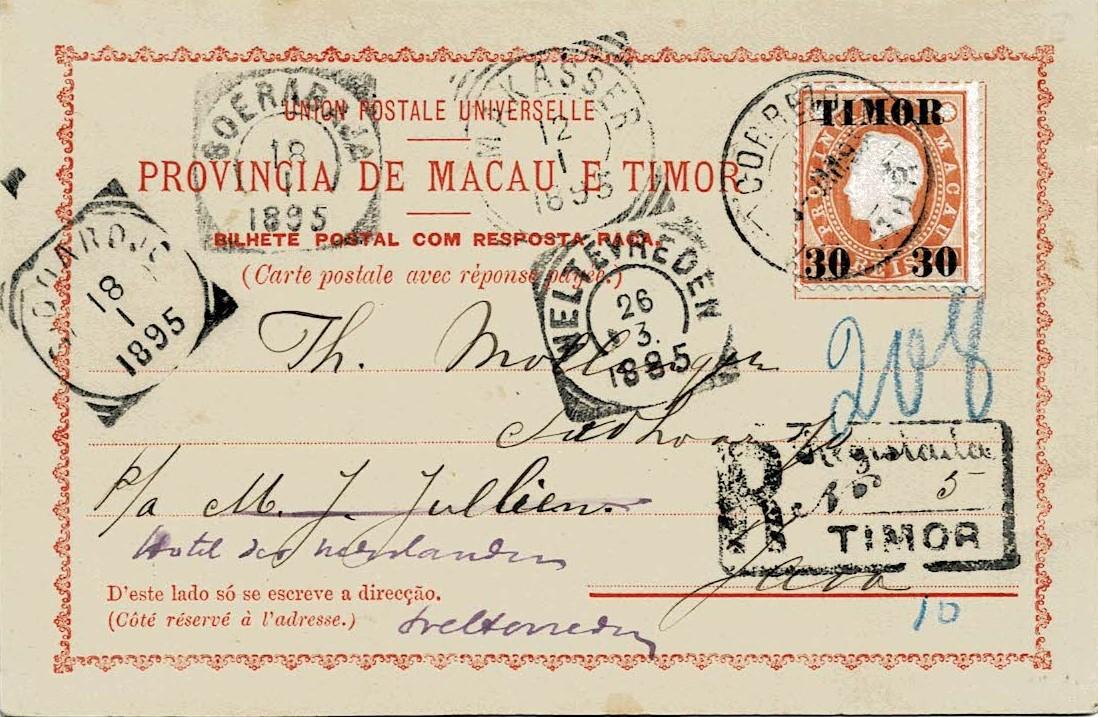 UNION POSTALE UNIVERSELLE
PROVINCIA DE MACAU E TIMOR
BILHETE POSTAL COM RESPOSTA PAGA.
(Carte postale avec réponse payée.)
SOERABAJA
18
1
1895
MAKASSER
12
1
1895
CORREIO
TIMOR
PROVINCIA MACAU
REIS
30 30
SIDOARDJO
18
1
1895
WELTEVREDEN
26
3.
1895
208
Th.
R
Registada
Nº 5
TIMOR
p/a M. J. Jullien.
Hotel der Nederlanden
Java
D'este lado só se escreve a direcção.
(Côté réservé à l'adresse.)
Weltevreden
10